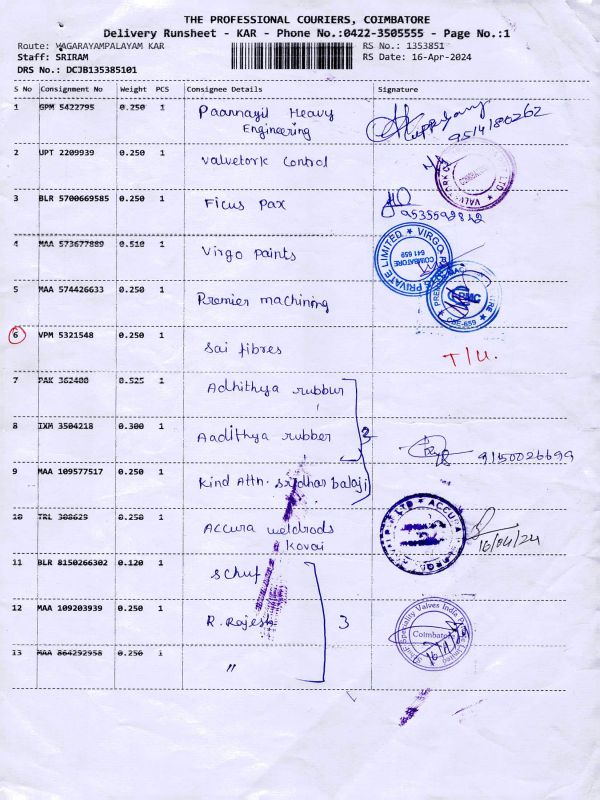 THE PROFESSIONAL COURIERS, COIMBATORE
Delivery Runsheet - KAR - Phone No.:0422-3505555 - Page No.:1
Route: VAGARAYAMPALAYAM KAR RS No.: 1353851
Staff: SRIRAM RS Date: 16-Apr-2024
DRS No.: DCJB135385101
S No Consignment No Weight PCS Consignee Details Signature
1 GPM 5422795 0.250 1 Paannayil Heavy
Engineering
9514180262
2 UPT 2209939 0.250 1 Valvetork Control
3 BLR 5700669585 0.250 1 Ficus Pax
9535592842
4 MAA 573677889 0.510 1 Virgo Paints
PRIVATE LIMITED ★ VIRGO
COIMBATORE
641 659
5 MAA 574426633 0.250 1 Premier machining
PMC
COE-659
6 VPM 5321548 0.250 1 Sai fibres
T/U.
7 PAK 362400 0.525 1 Adhithya rubbur
8 IXM 3504218 0.300 1 Aadithya rubber 3
9150026699
9 MAA 109577517 0.250 1 Kind Attn. Sridhar balaji
10 TRL 308629 0.250 1 Accura weldrods
Kovai
ACCURA
16/04/24
11 BLR 8150266302 0.120 1 Schuf
12 MAA 109203939 0.250 1 R. Rajesh 3
Schuf Speciality Valves India Private Limited
Coimbatore
13 MAA 864292958 0.250 1 "